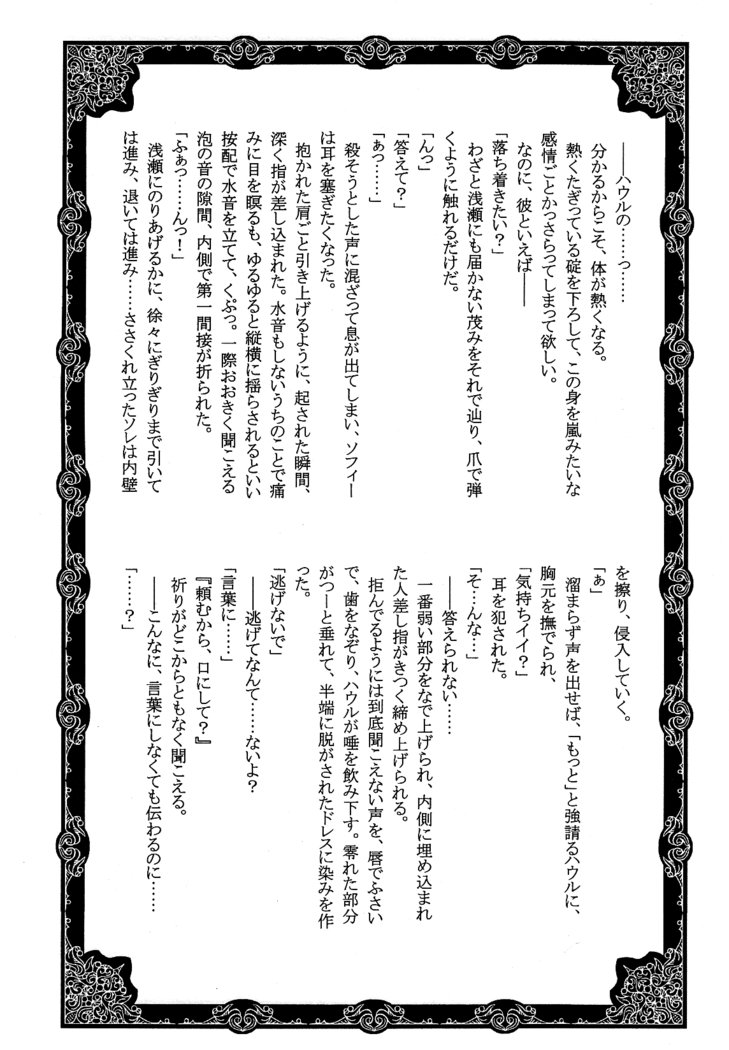 ――ハウルの……っ……
分かるからこそ、体が熱くなる。
熱くたぎっている碇を下ろして、この身を嵐みたいな
感情ごとかっさらってしまって欲しい。
なのに、彼といえば――
「落ち着きたい？」
わざと浅瀬にも届かない茂みをそれで辿り、爪で弾
くように触れるだけだ。
「んっ」
「答えて？」
「ぁっ……」
殺そうとした声に混ざって息が出てしまい、ソフィー
は耳を塞ぎたくなった。
抱かれた肩ごと引き上げるように、起された瞬間、
深く指が差し込まれた。水音もしないうちのことで痛
みに目を瞑るも、ゆるゆると縦横に揺らされるといい
按配で水音を立てて、くぷっ。一際おおきく聞こえる
泡の音の隙間、内側で第一間接が折られた。
「ふぁっ……んっ！」
浅瀬にのりあげるかに、徐々にぎりぎりまで引いて
は進み、退いては進み……ささくれ立ったソレは内壁
を擦り、侵入していく。
「ぁ」
溜まらず声を出せば、「もっと」と強請るハウルに、
胸元を撫でられ、
「気持ちイイ？」
耳を犯された。
「そ…んな…」
――答えられない……
一番弱い部分をなで上げられ、内側に埋め込まれ
た人差し指がきつく締め上げられる。
拒んでるようには到底聞こえない声を、唇でふさい
で、歯をなぞり、ハウルが唾を飲み下す。零れた部分
がつーと垂れて、半端に脱がされたドレスに染みを作
った。
「逃げないで」
――逃げてなんて……ないよ？
「言葉に……」
『頼むから、口にして？』
祈りがどこからともなく聞こえる。
――こんなに、言葉にしなくても伝わるのに……
「……？」